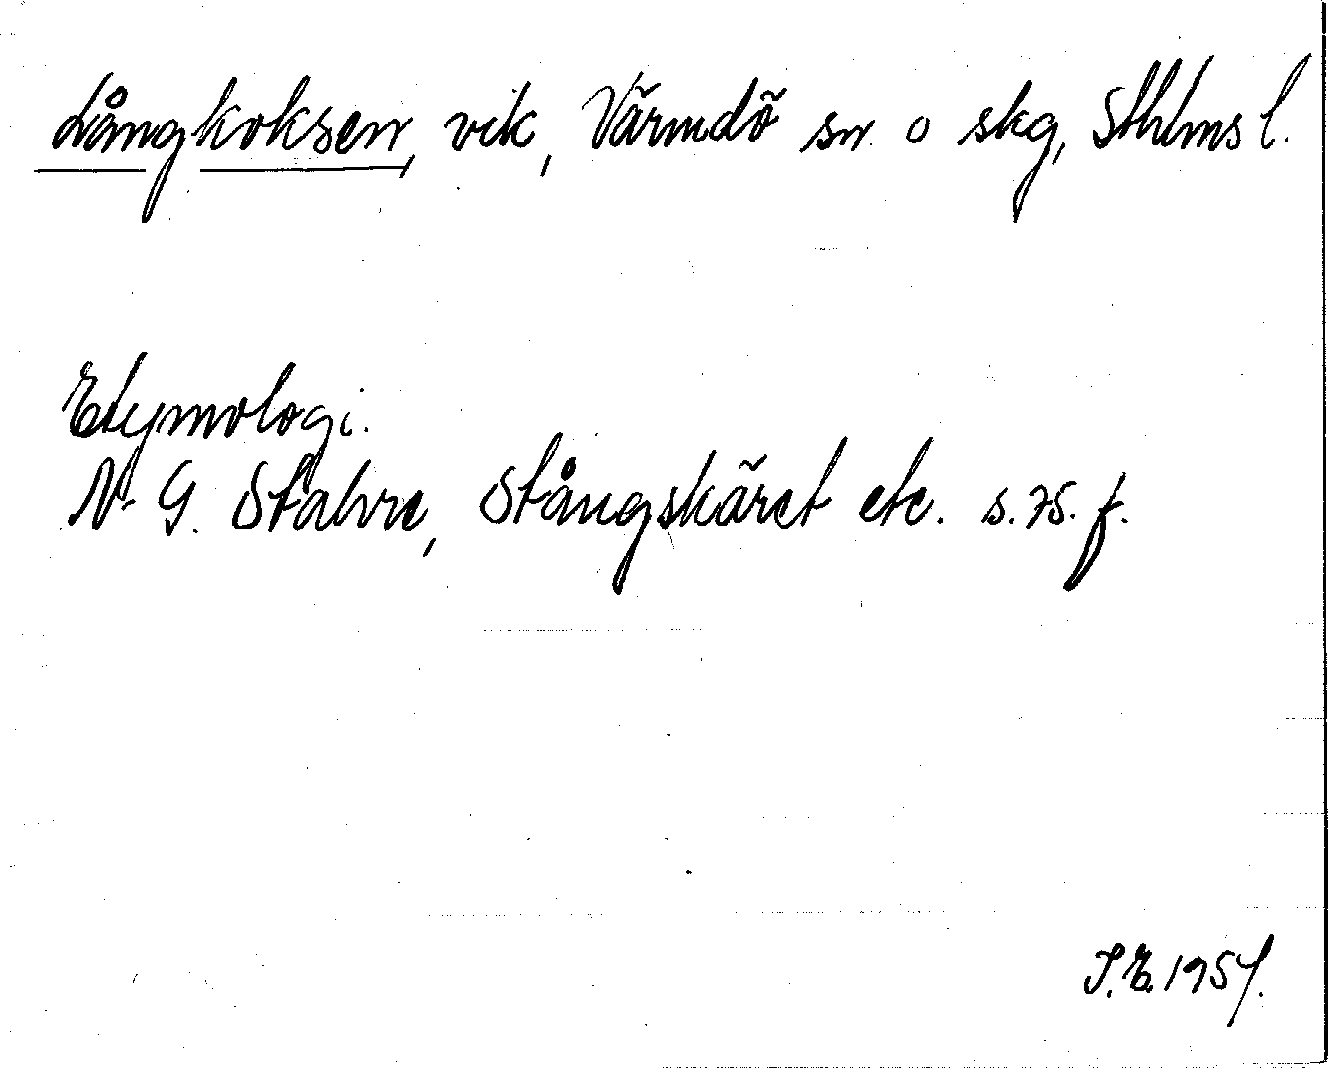 Långkoksen, vik, Värmdö sn o skg, Sthlms l.
Etymologi.
N. G. Stahre, Stångskäret etc. s. 75. f.
S.E. 1957.